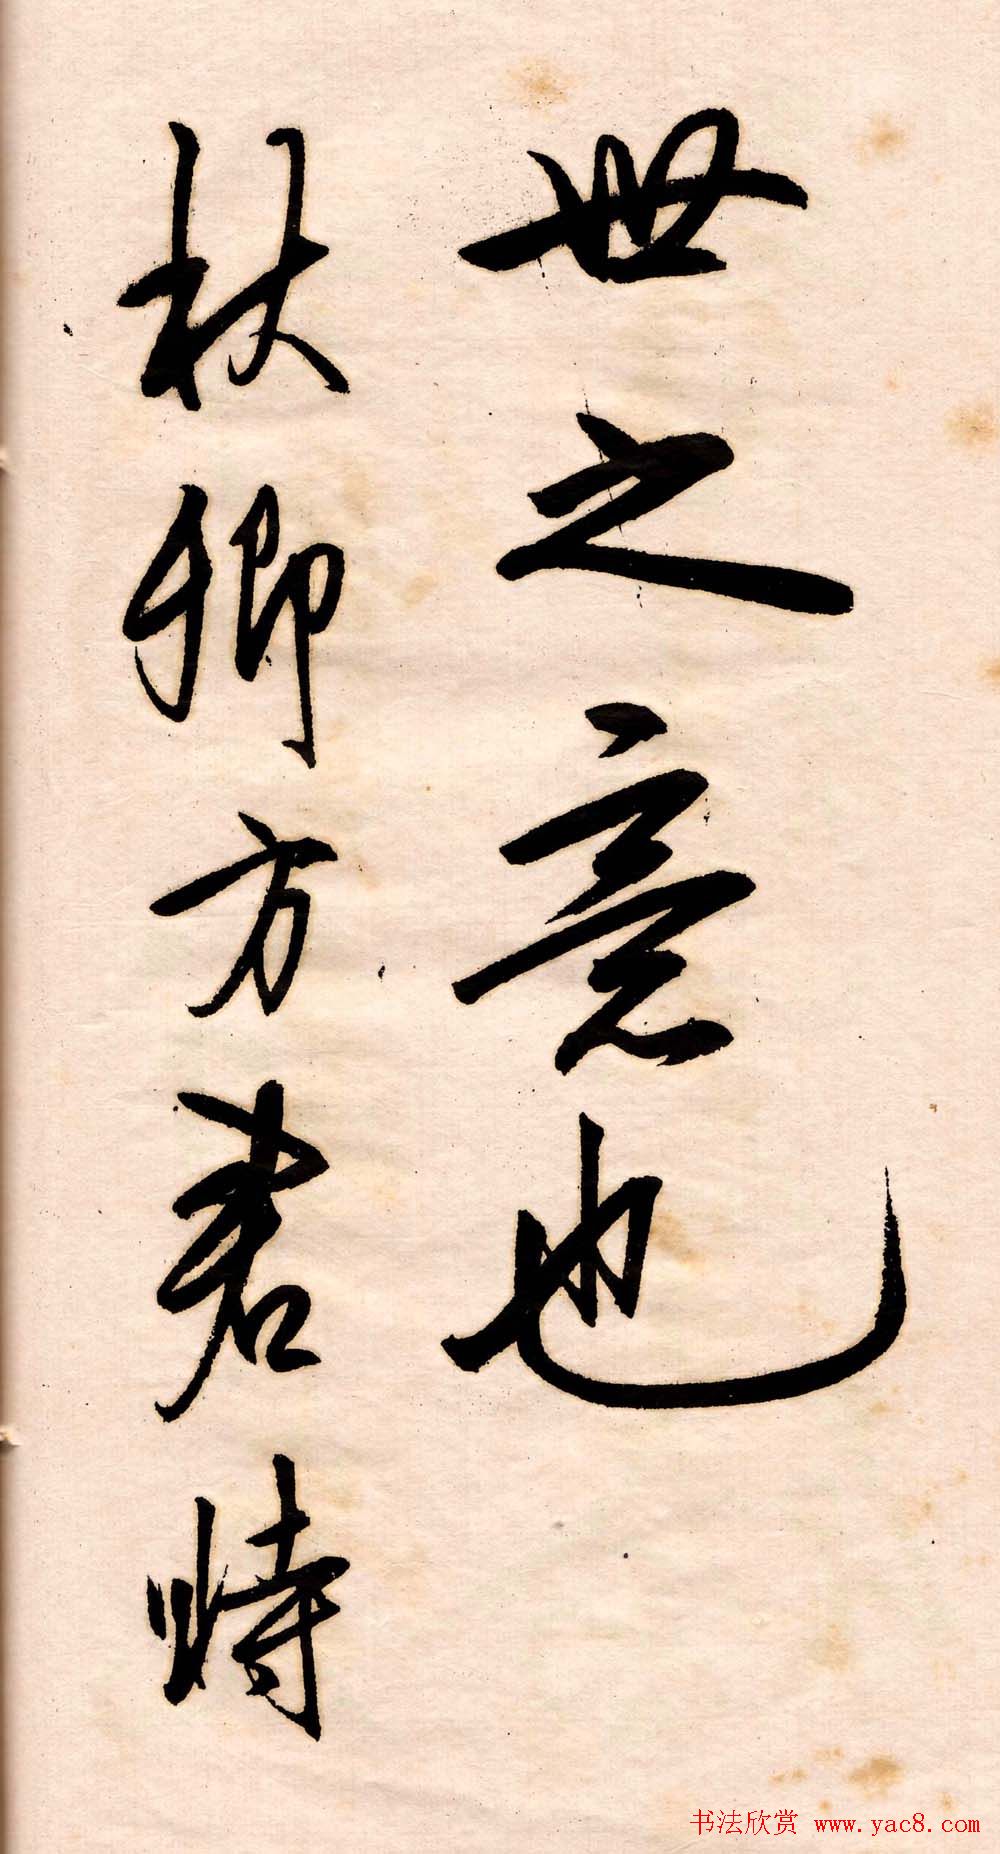 世之意也
卿方君時
书法欣赏 www.yac8.com